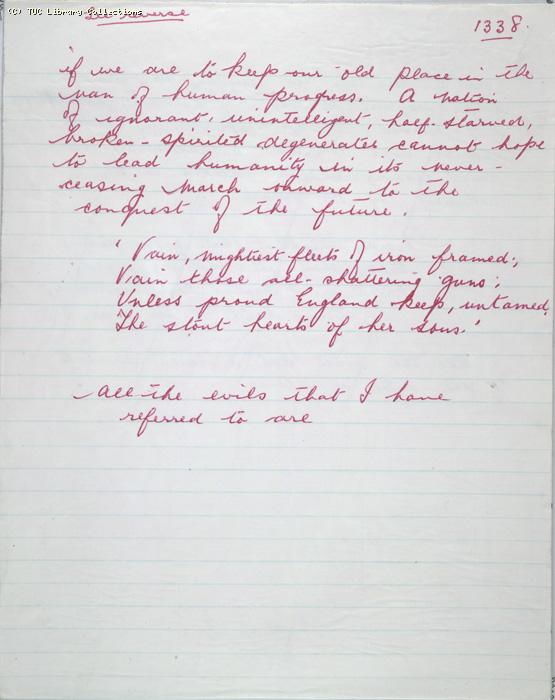 (C) TUC Library Collections
See reverse
1338.
if we are to keep our old place in the
van of human progress. A nation
of ignorant, unintelligent, half-starved,
broken-spirited degenerates cannot hope
to lead humanity in its never-
ceasing march onward to the
conquest of the future.
'Vain, mightiest fleets of iron framed;
Vain those all-shattering guns;
Unless proud England keep, untamed,
The stout hearts of her sons.'
All the evils that I have
referred to are